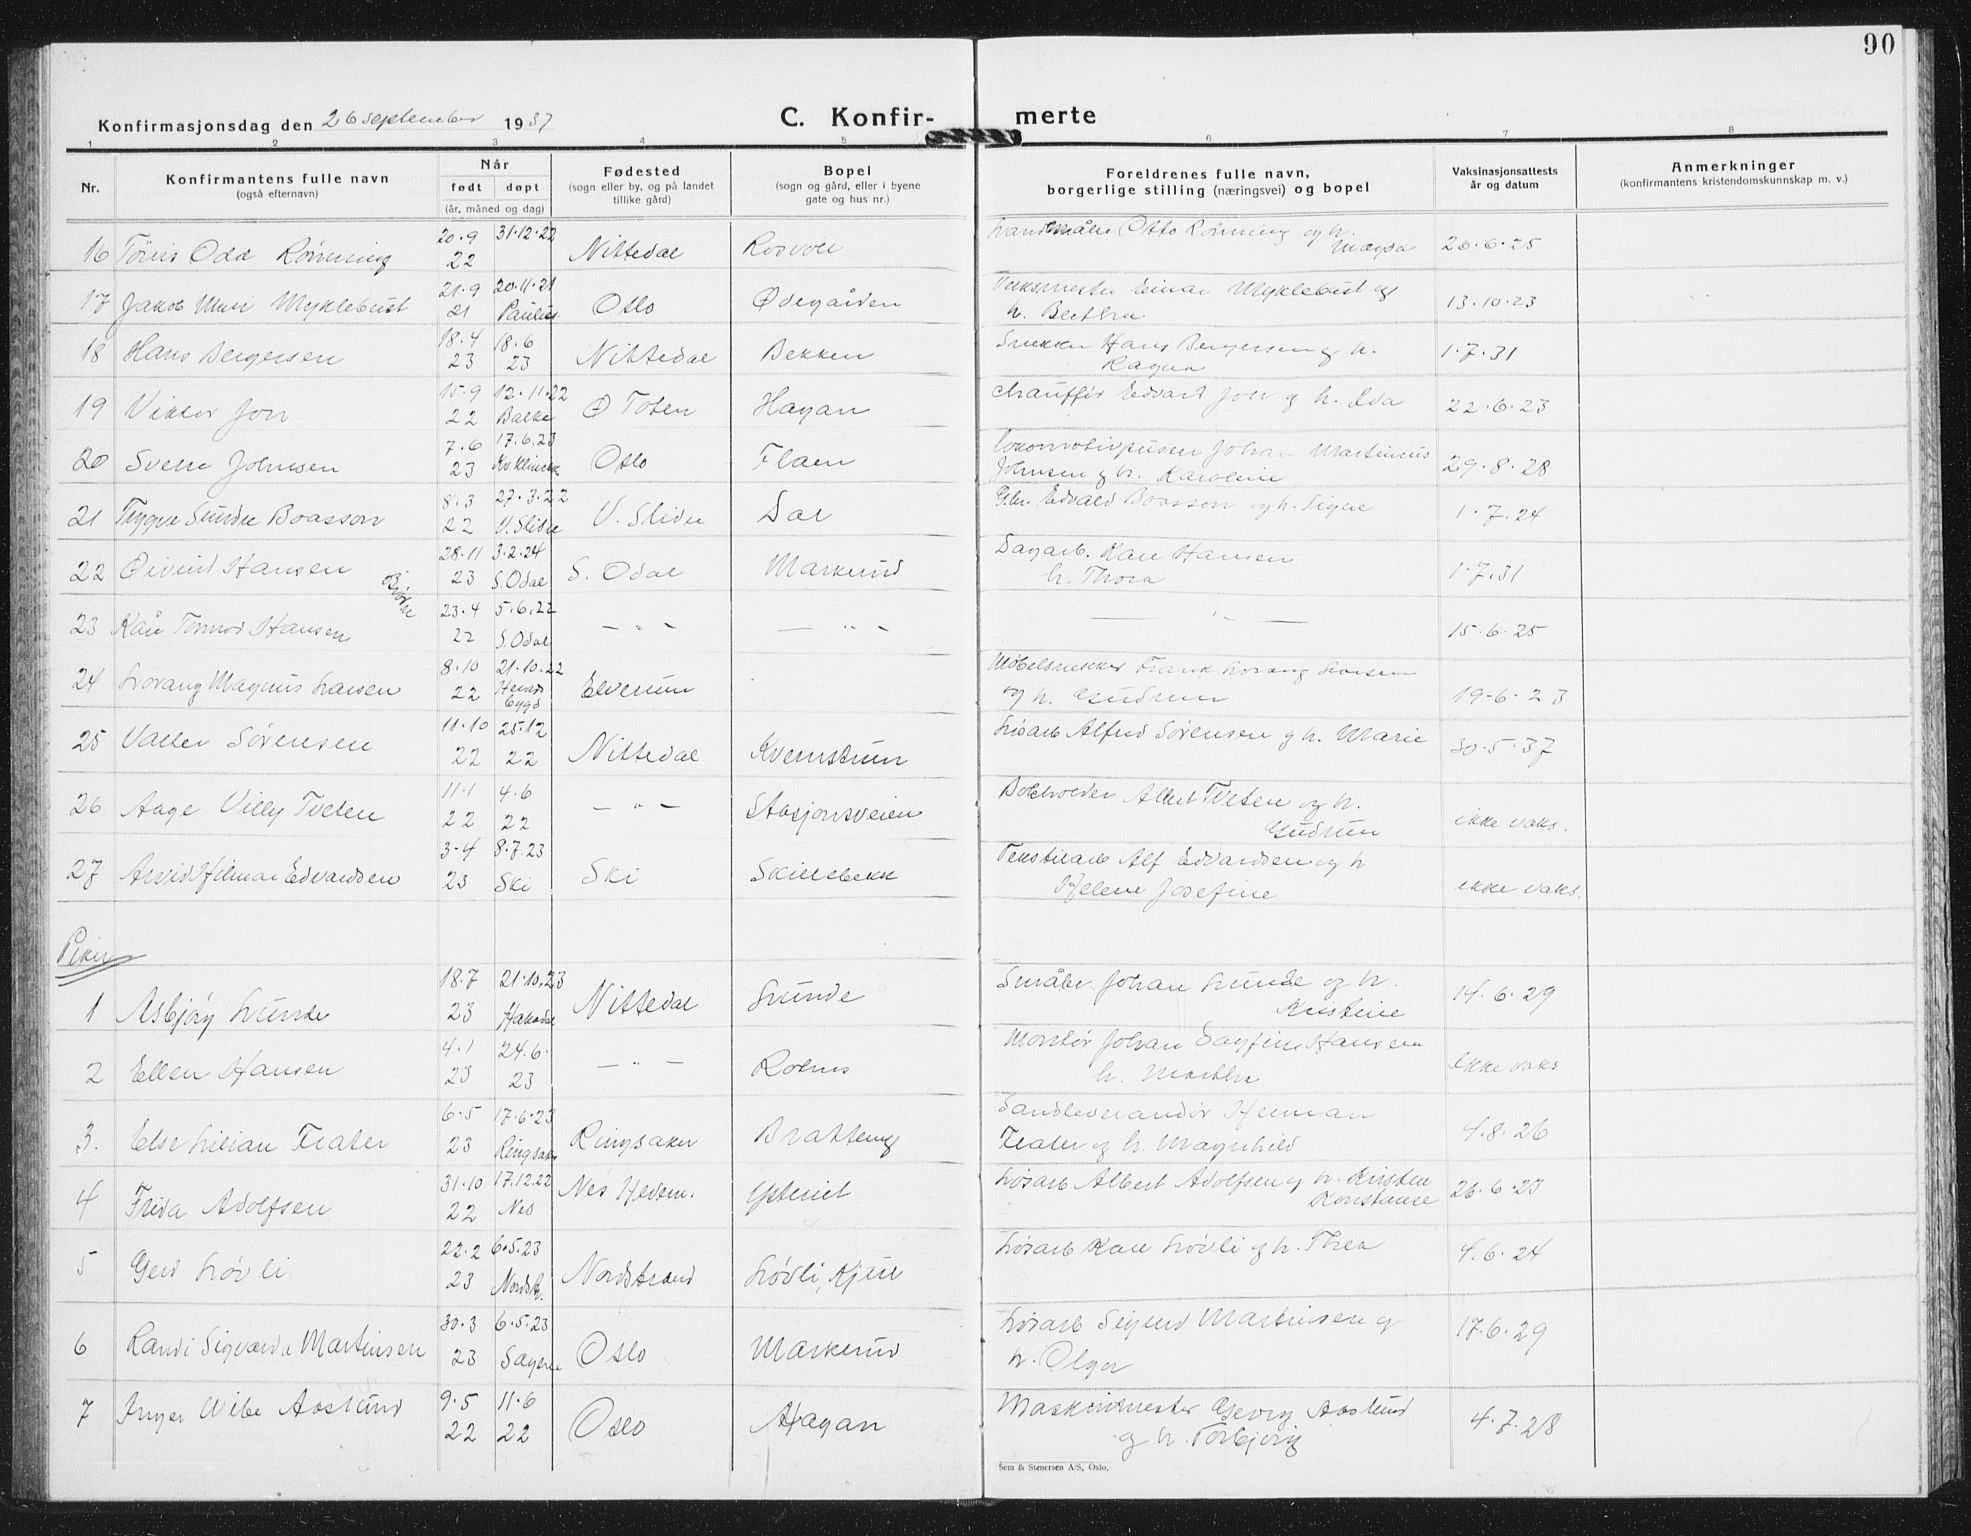 90
Konfirmasjonsdag den 26 september 1937
C. Konfir- merte
1 2 3 4 5 6 7 8
Nr. Konfirmantens fulle navn (også efternavn) Når født døpt (år, måned og dag) Fødested (sogn eller by, og på landet tillike gård) Bopel (sogn og gård, eller i byene gate og hus nr.) Foreldrenes fulle navn, borgerlige stilling (næringsvei) og bopel Vaksinasjonsattests år og datum Anmerkninger (konfirmantens kristendomskunnskap m. v.)
16 Odd Rønning 20.9 22 31.12.22 Nittedal Rosvoll Otto Rønning og h. Magda 26.6.25
17 Jakob Myklebust 21.9 21 20.11.21 Paulus Oslo Ødegården Einar Myklebust og h. Bertha 13.10.23
18 Hans Bergersen 18.4 23 18.6 23 Nittedal Bekken Snekker Hans Bergersen og h. Ragna 1.7.31
19 Viktor Jon 15.9 22 12.11.22 Balke Ø Toten Hagan chauffør Edvart Jon og h. Ida 22.6.23
20 Sverre Johnsen 7.6 23 17.6.23 Oslo Flaen Lokomotivpusser Johan Martinius Johnsen og h. Karoline 29.8.28
21 Trygve Sundre Boasson 8.3 22 27.3.22 V. Slidre V. Slidre Dal Gbr. Edvald Boasson og h. Signe 1.7.24
22 Øivind Hansen 28.11 23 3.2.24 S. Odal S. Odal Markerud Dagarb. Karl Hansen h. Thora 1.7.31
Brødre
23 Kåre Tormod Hansen 23.4 22 5.6.22 S. Odal — " — — " — — " — 15.6.25
24 Lorang Magnus Larsen 8.10 22 21.10.22 Heradsbygd Elverum Møbelsnekker Frank Lorang Larsen og h. Gudrun 19-6.23
25 Valter Sørensen 11.10 22 25.12 22 Nittedal Kvernstuen Løsarb Alfred Sørensen og h. Marie 30.5.37
26 Aage Villy Tveten 11.1 22 4.6 22 — " — Stasjonsveien Albert Tveten og h. Gudrun ikke vaks.
27 Arvid Hilmar Edvardsen 3-4 23 8.7.23 Ski Ski Skillebekk Tekstilarb Alf Edvardsen og h Helene Josefine ikke vaks.
Piker
1 Asbjørg Lunde 18.7 23 21.10.23 Hakadal Nittedal Lunde Småbr. Johan Lunde og h. Kristine 14.6.29
2 Ellen Hansen 4.1 23 24.6. 23 — " — Rolnes Montør Johan Dagfinn Hansen h. Martha Ikke vaks
3. Else Lilian Frater 6.5 23 17.6.23 Ringsaker Ringsaker Bratteng Sandleverandør Herman Frater og h. Magnhild 4.8.26
4 Frida Adolfsen 31.10 22 17.12.22 Nes Nes Hedem. Løsarb Albert Adolfsen og h. Kristen Konstanse 26.6.23
5 Gerd Løvli 22.2 23 6.5.23 Nordstr. Nordstrand Løvli, Kjul Løsarb Karl Løvli og h. Thea 4.6.24
6 Randi Sigvarda Martinsen 30.3 23 6.5.23 Sagene Oslo Markerud Løsarb Sigurd Martinsen og h. Olga 17.6.29
7 Inger Wibe Aaslund 9.5 22 11.6 22 Oslo Hagan Maskinmester Georg Aaslund og h. Torbjørg 4.7.28
Sem & Stenersen A/S, Oslo.